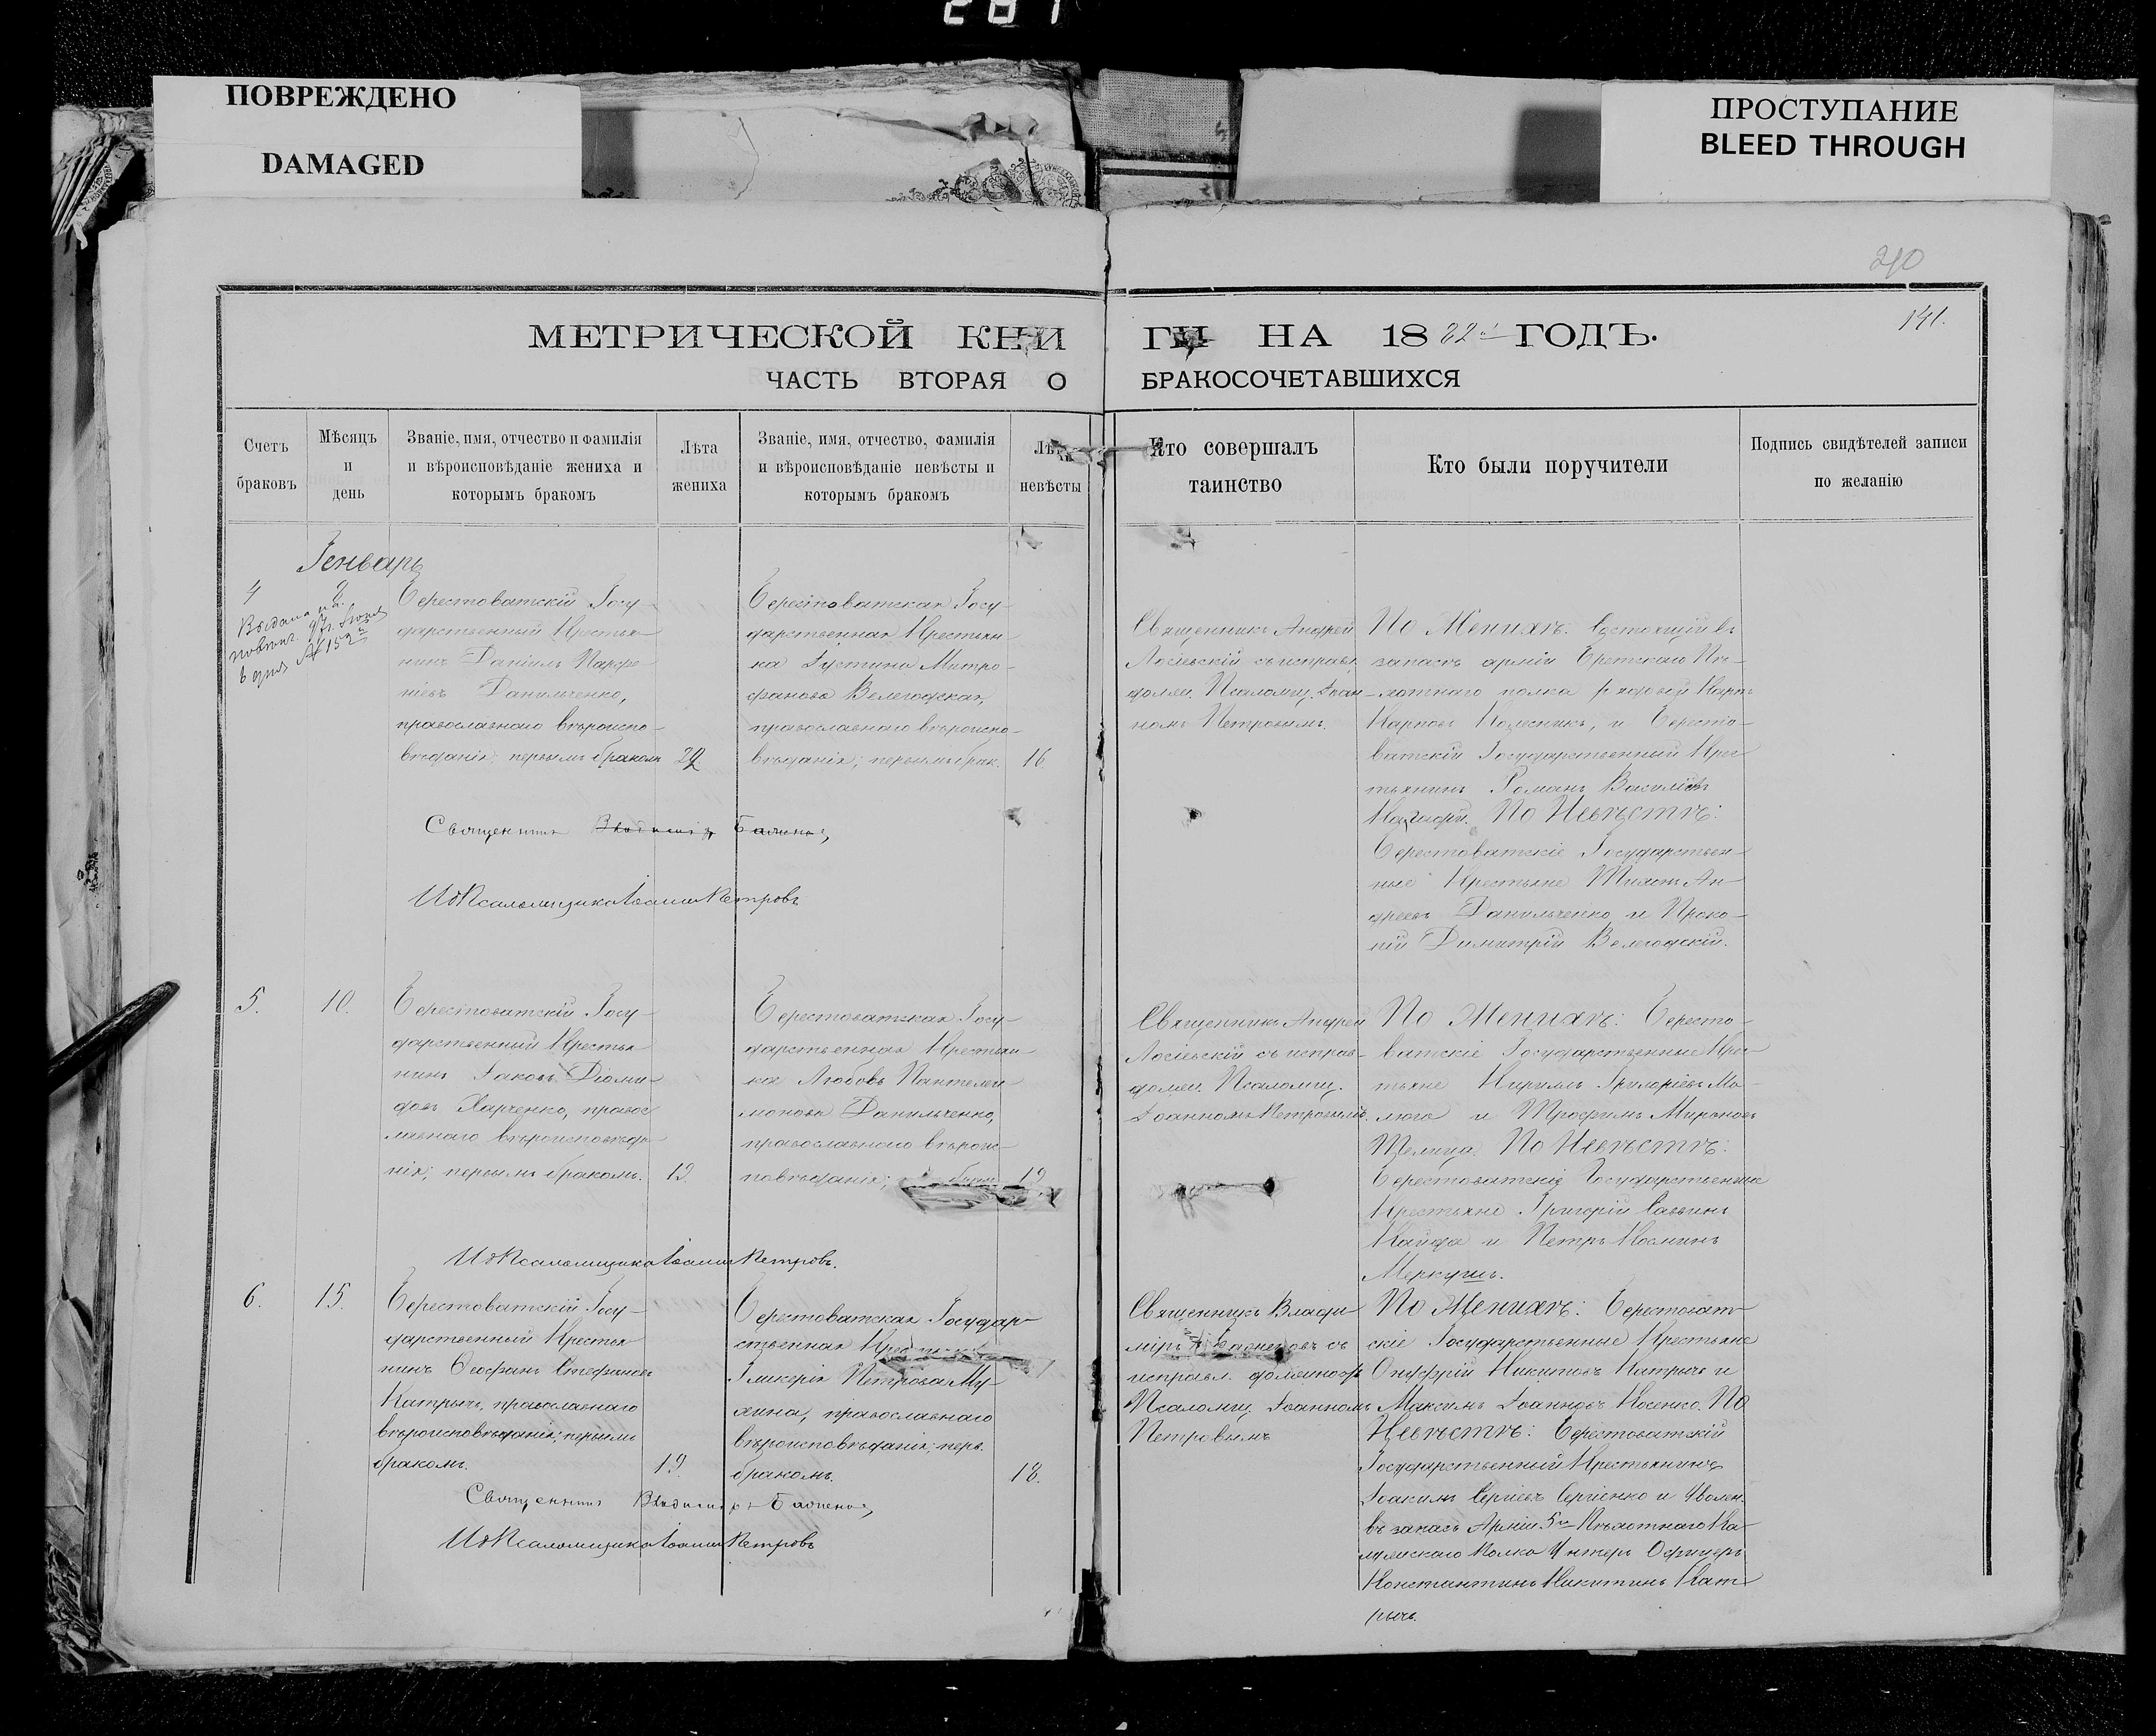 281
ПОВРЕЖДЕНО
DAMAGED
ПРОСТУПАНИЕ
BLEED THROUGH
210
141.
МЕТРИЧЕСКОЙ КНИГИ НА 1882й ГОДЪ.
ЧАСТЬ ВТОРАЯ О БРАКОСОЧЕТАВШИХСЯ
Счетъ
браковъ
Мѣсяцъ
и
день
Званіе, имя, отчество и фамилія
и вѣроисповѣданіе жениха и
которымъ бракомъ
Лѣта
жениха
Званіе, имя, отчество, фамилія
и вѣроисповѣданіе невѣсты и
которымъ бракомъ
Лѣта
невѣсты
Кто совершалъ
таинство
Кто были поручители
Подпись свидѣтелей записи
по желанію
Генварь
4
Берестоватскій Госу-
дарственный Крестья-
нинъ Даніилъ Парфе-
ніевъ Данильченко,
православнаго вѣроиспо-
вѣданія; первымъ бракомъ
Берестоватская Госу-
дарственная Крестьян-
ка Іустина Митро-
фанова Велегодская,
православнаго вѣроиспо-
вѣданія; первымъ брак.
16.
Священникъ Андрей
Лосіевскій съ исправл.
должн. Псаломщ. Іоан-
номъ Петровымъ.
По Женихѣ: Состоящій въ
запасѣ арміи Пѣ-
хотнаго полка рядовой Карпъ
Карповъ Колесникъ, и Бересто-
ватскій Государственный Крес-
тьянинъ Романъ Василіевъ
По Невѣстѣ:
Берестоватскіе Государствен-
ные Крестьяне Тихонъ Ан-
дреевъ Данильченко и Проко-
пій Димитрій Велегодскій.
Священникъ Владиміръ
И д Псаломщика Іоаннъ Петровъ
5.
10.
Берестоватскій Госу-
дарственный Крестья-
нинъ Іаковъ Діоми-
довъ Харченко, правос-
лавнаго вѣроисповѣда-
нія; первымъ бракомъ.
19.
Берестоватская Госу-
дарственная Крестьян-
ка Любовь Пантелеи-
монова Данильченко,
православнаго вѣроис-
повѣданія;
19.
Священникъ Андрей
Лосіевскій съ исправ-
должн. Псаломщ.
Іоанномъ Петровымъ.
По Женихѣ: Бересто-
ватскіе Государственные Крес-
тьяне Кириллъ Григоріевъ Мо-
люга и Трофимъ Мироновъ
По Невѣстѣ:
Берестоватскіе Государственные
Крестьяне Григорій Саввинъ
Кайда и Петръ Косминъ
Меркушъ.
И д Псаломщика Іоаннъ Петровъ.
6.
15.
Берестоватскій Госу-
дарственный Крестья-
нинъ Ѳеофанъ Стефановъ
Катрычъ, православнаго
вѣроисповѣданія; первымъ
бракомъ.
19.
Берестоватская Государ-
ственная
Гликерія Петрова Му-
хина, православнаго
вѣроисповѣданія; перв.
бракомъ.
18.
Священникъ Влади-
міръ съ
исправл. должность
Псаломщ. Іоанномъ
Петровымъ
По Женихѣ: Берестоват-
скіе Государственные Крестьяне
Онуфрій Никитовъ Катрычъ и
Максимъ Іоанновъ Носенко. По
Невѣстѣ: Берестоватскій
Государственный Крестьянинъ
Іоакимъ Сергіевъ Сергіенко и Уволен.
въ запасъ Арміи 5го Пѣхотнаго Ка-
лужскаго Полка Унтеръ Офицеръ
Константинъ Никитинъ Кат-
рычъ.
Священникъ Владиміръ
И д Псаломщика Іоаннъ Петровъ